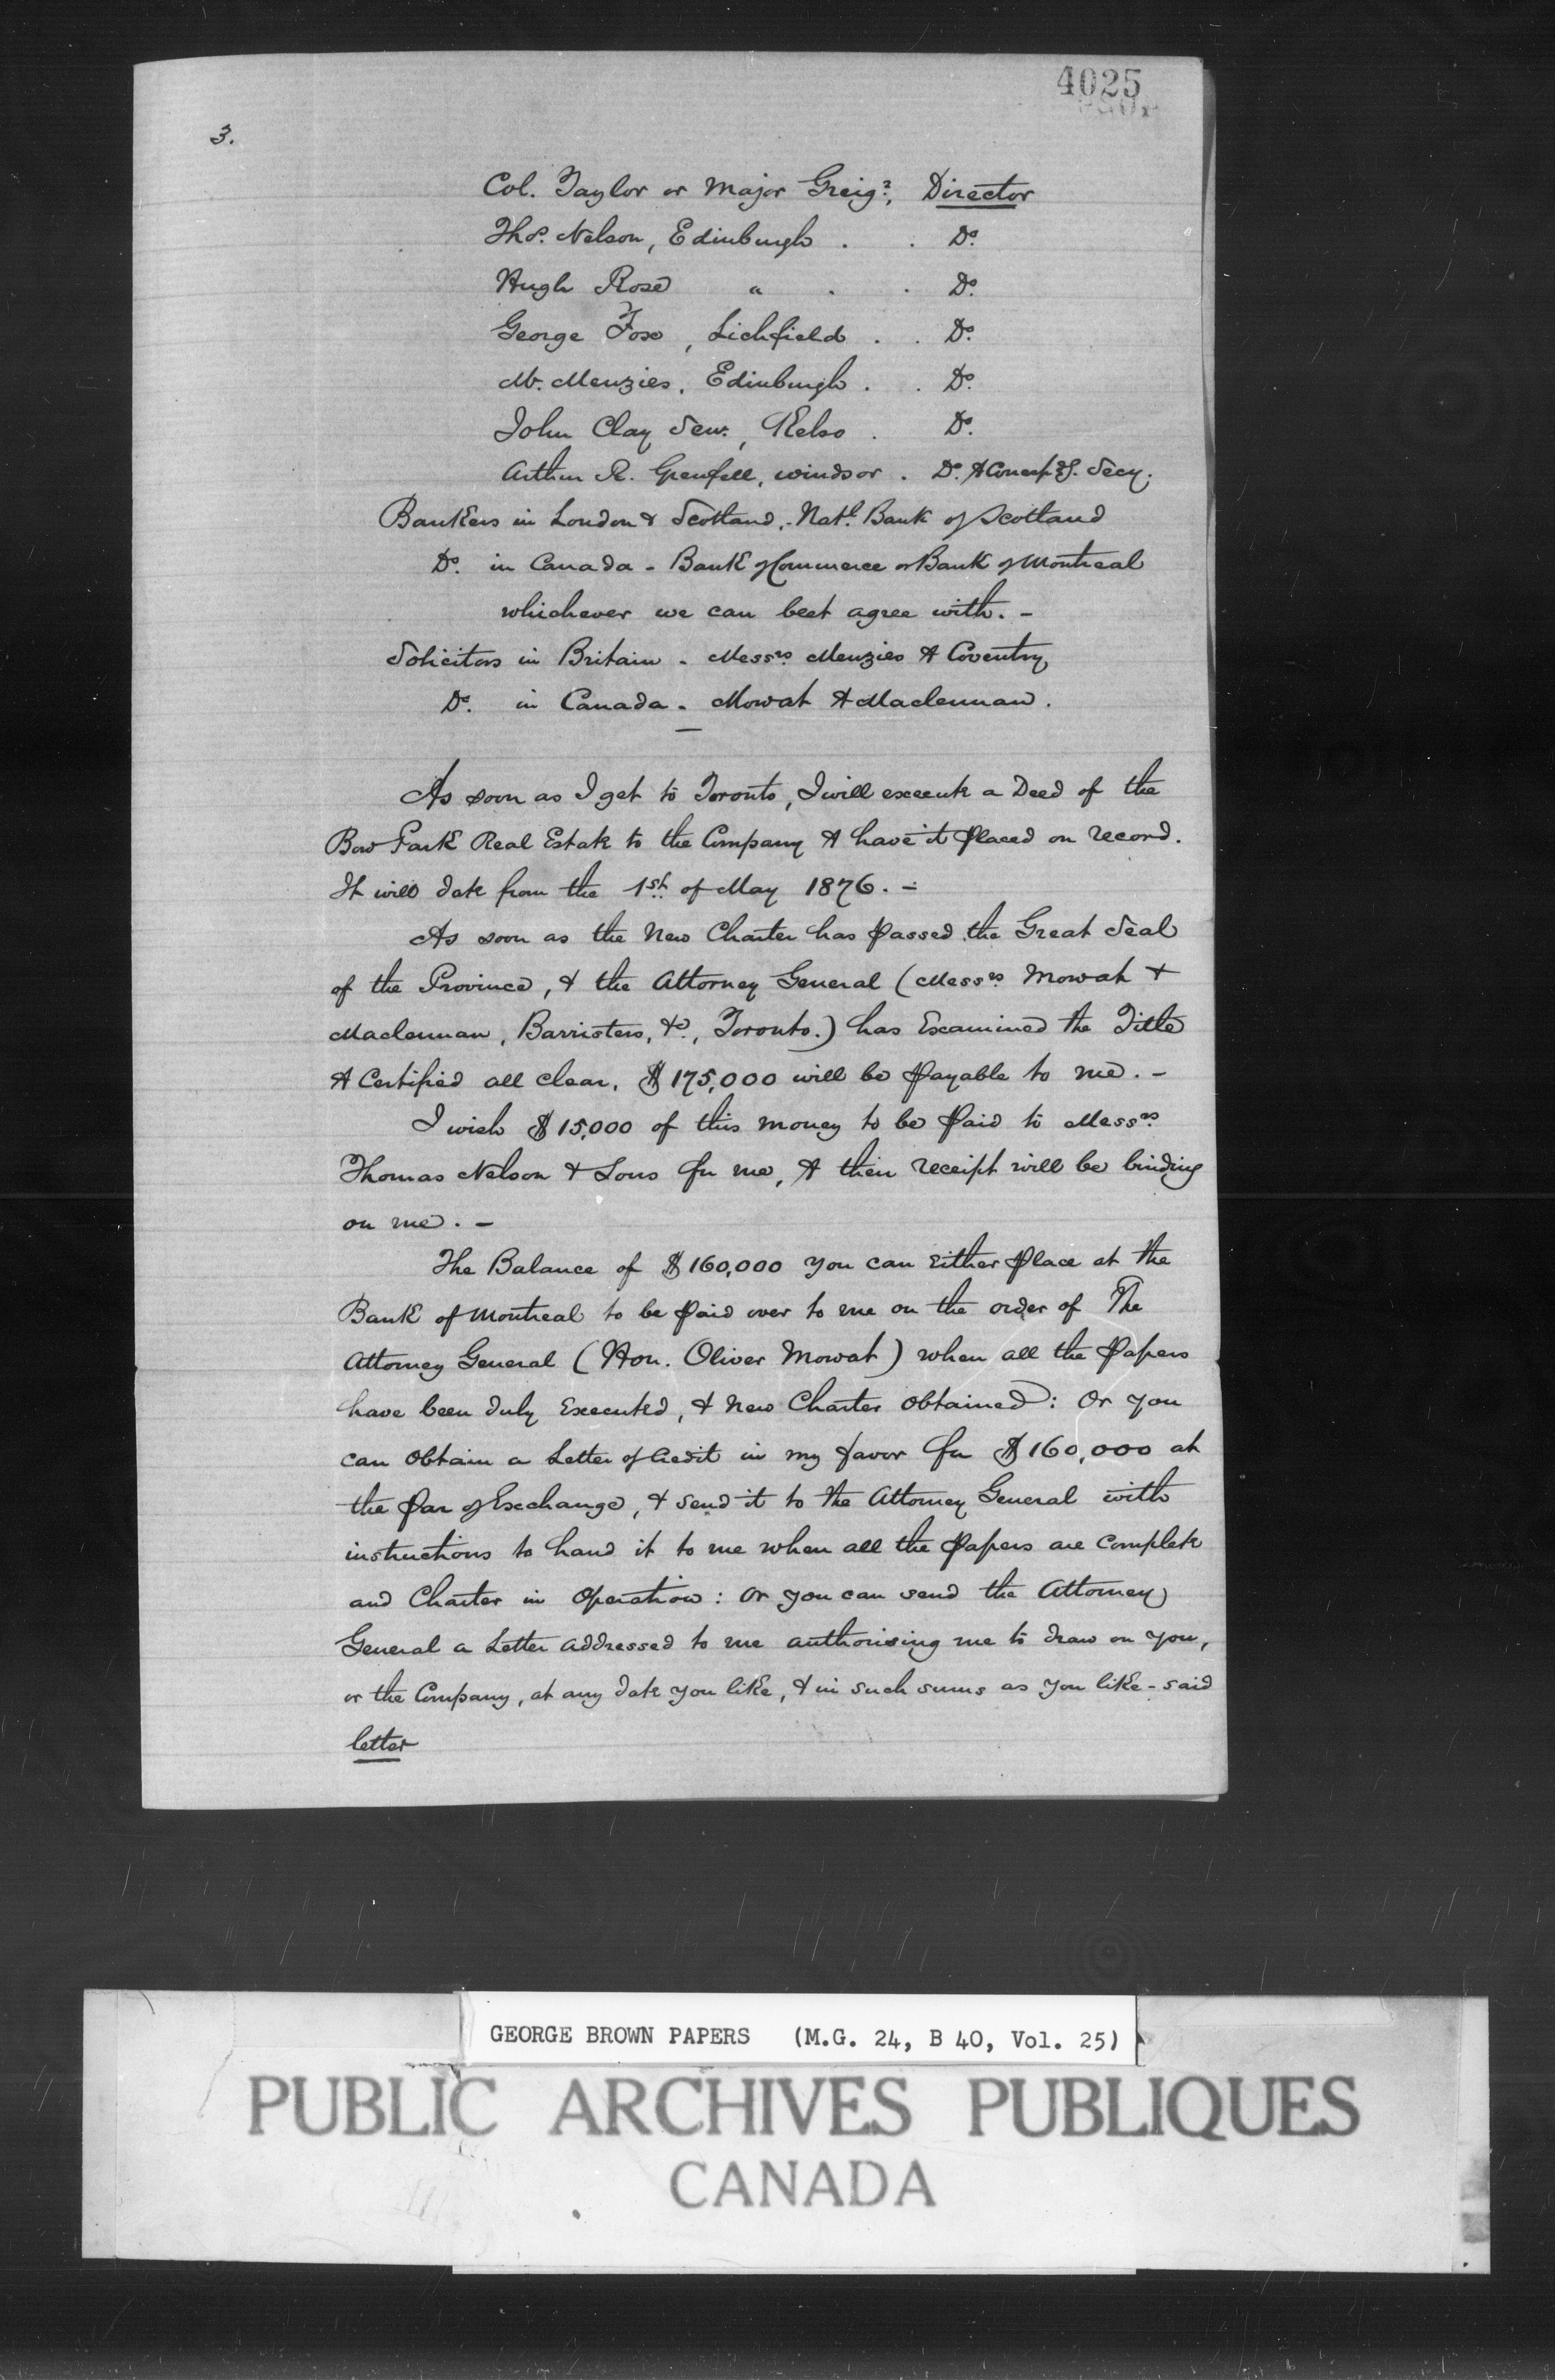 4025
3.
Col. Taylor or Major Greig?, Director
Thos. Nelson, Edinburgh . . Do.
Hugh Rose " . . Do.
George Fox, Lichfield . . Do.
Mr. Menzies, Edinburgh . . Do.
John Clay Senr., Kelso . Do.
Arthur R. Grenfell, Windsor . Do. & Secy.
Bankers in London & Scotland, - Natl. Bank of Scotland
Do. in Canada - Bank of Commerce or Bank of Montreal
whichever we can best agree with. -
Solicitors in Britain - Messrs. Menzies & Coventry
Do. in Canada - Mowat & Maclennan.
As soon as I get to Toronto, I will execute a Deed of the
Bow Park Real Estate to the Company & have it placed on record.
It will date from the 1st. of May 1876. -
As soon as the New Charter has passed the Great Seal
of the Province, & the Attorney General (Messrs. Mowat &
Maclennan, Barristers, &c., Toronto.) has Examined the Title
& Certified all clear, $175,000 will be payable to me. -
I wish $15,000 of this money to be paid to Messrs.
Thomas Nelson & Sons for me, & their receipt will be binding
on me. -
The Balance of $160,000 you can either place at the
Bank of Montreal to be paid over to me on the order of The
Attorney General (Hon. Oliver Mowat) when all the papers
have been duly Executed, & New Charter obtained: Or you
can obtain a Letter of Credit in my favor for $160,000 at
the par of Exchange, & send it to the Attorney General with
instructions to hand it to me when all the papers are complete
and Charter in Operation: Or you can send the Attorney
General a Letter addressed to me authorising me to draw on you,
or the Company, at any date you like, & in such sums as you like - said
letter
GEORGE BROWN PAPERS (M.G. 24, B 40, Vol. 25)
PUBLIC ARCHIVES PUBLIQUES
CANADA